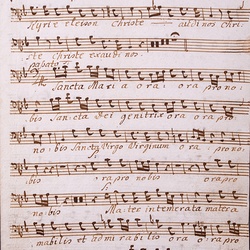 Kyrie eleison Christe audi nos Chri
ste Christe exaudi nos.
Sancta Maria ora ora pro no
bis Sancta Dei genitrix ora pro
no bis Sancta Virgo Virginum ora pro no
bis ora pro nobis ora pro
no bis Mater intemerata mater a
mabilis et admirabilis ora ora pro